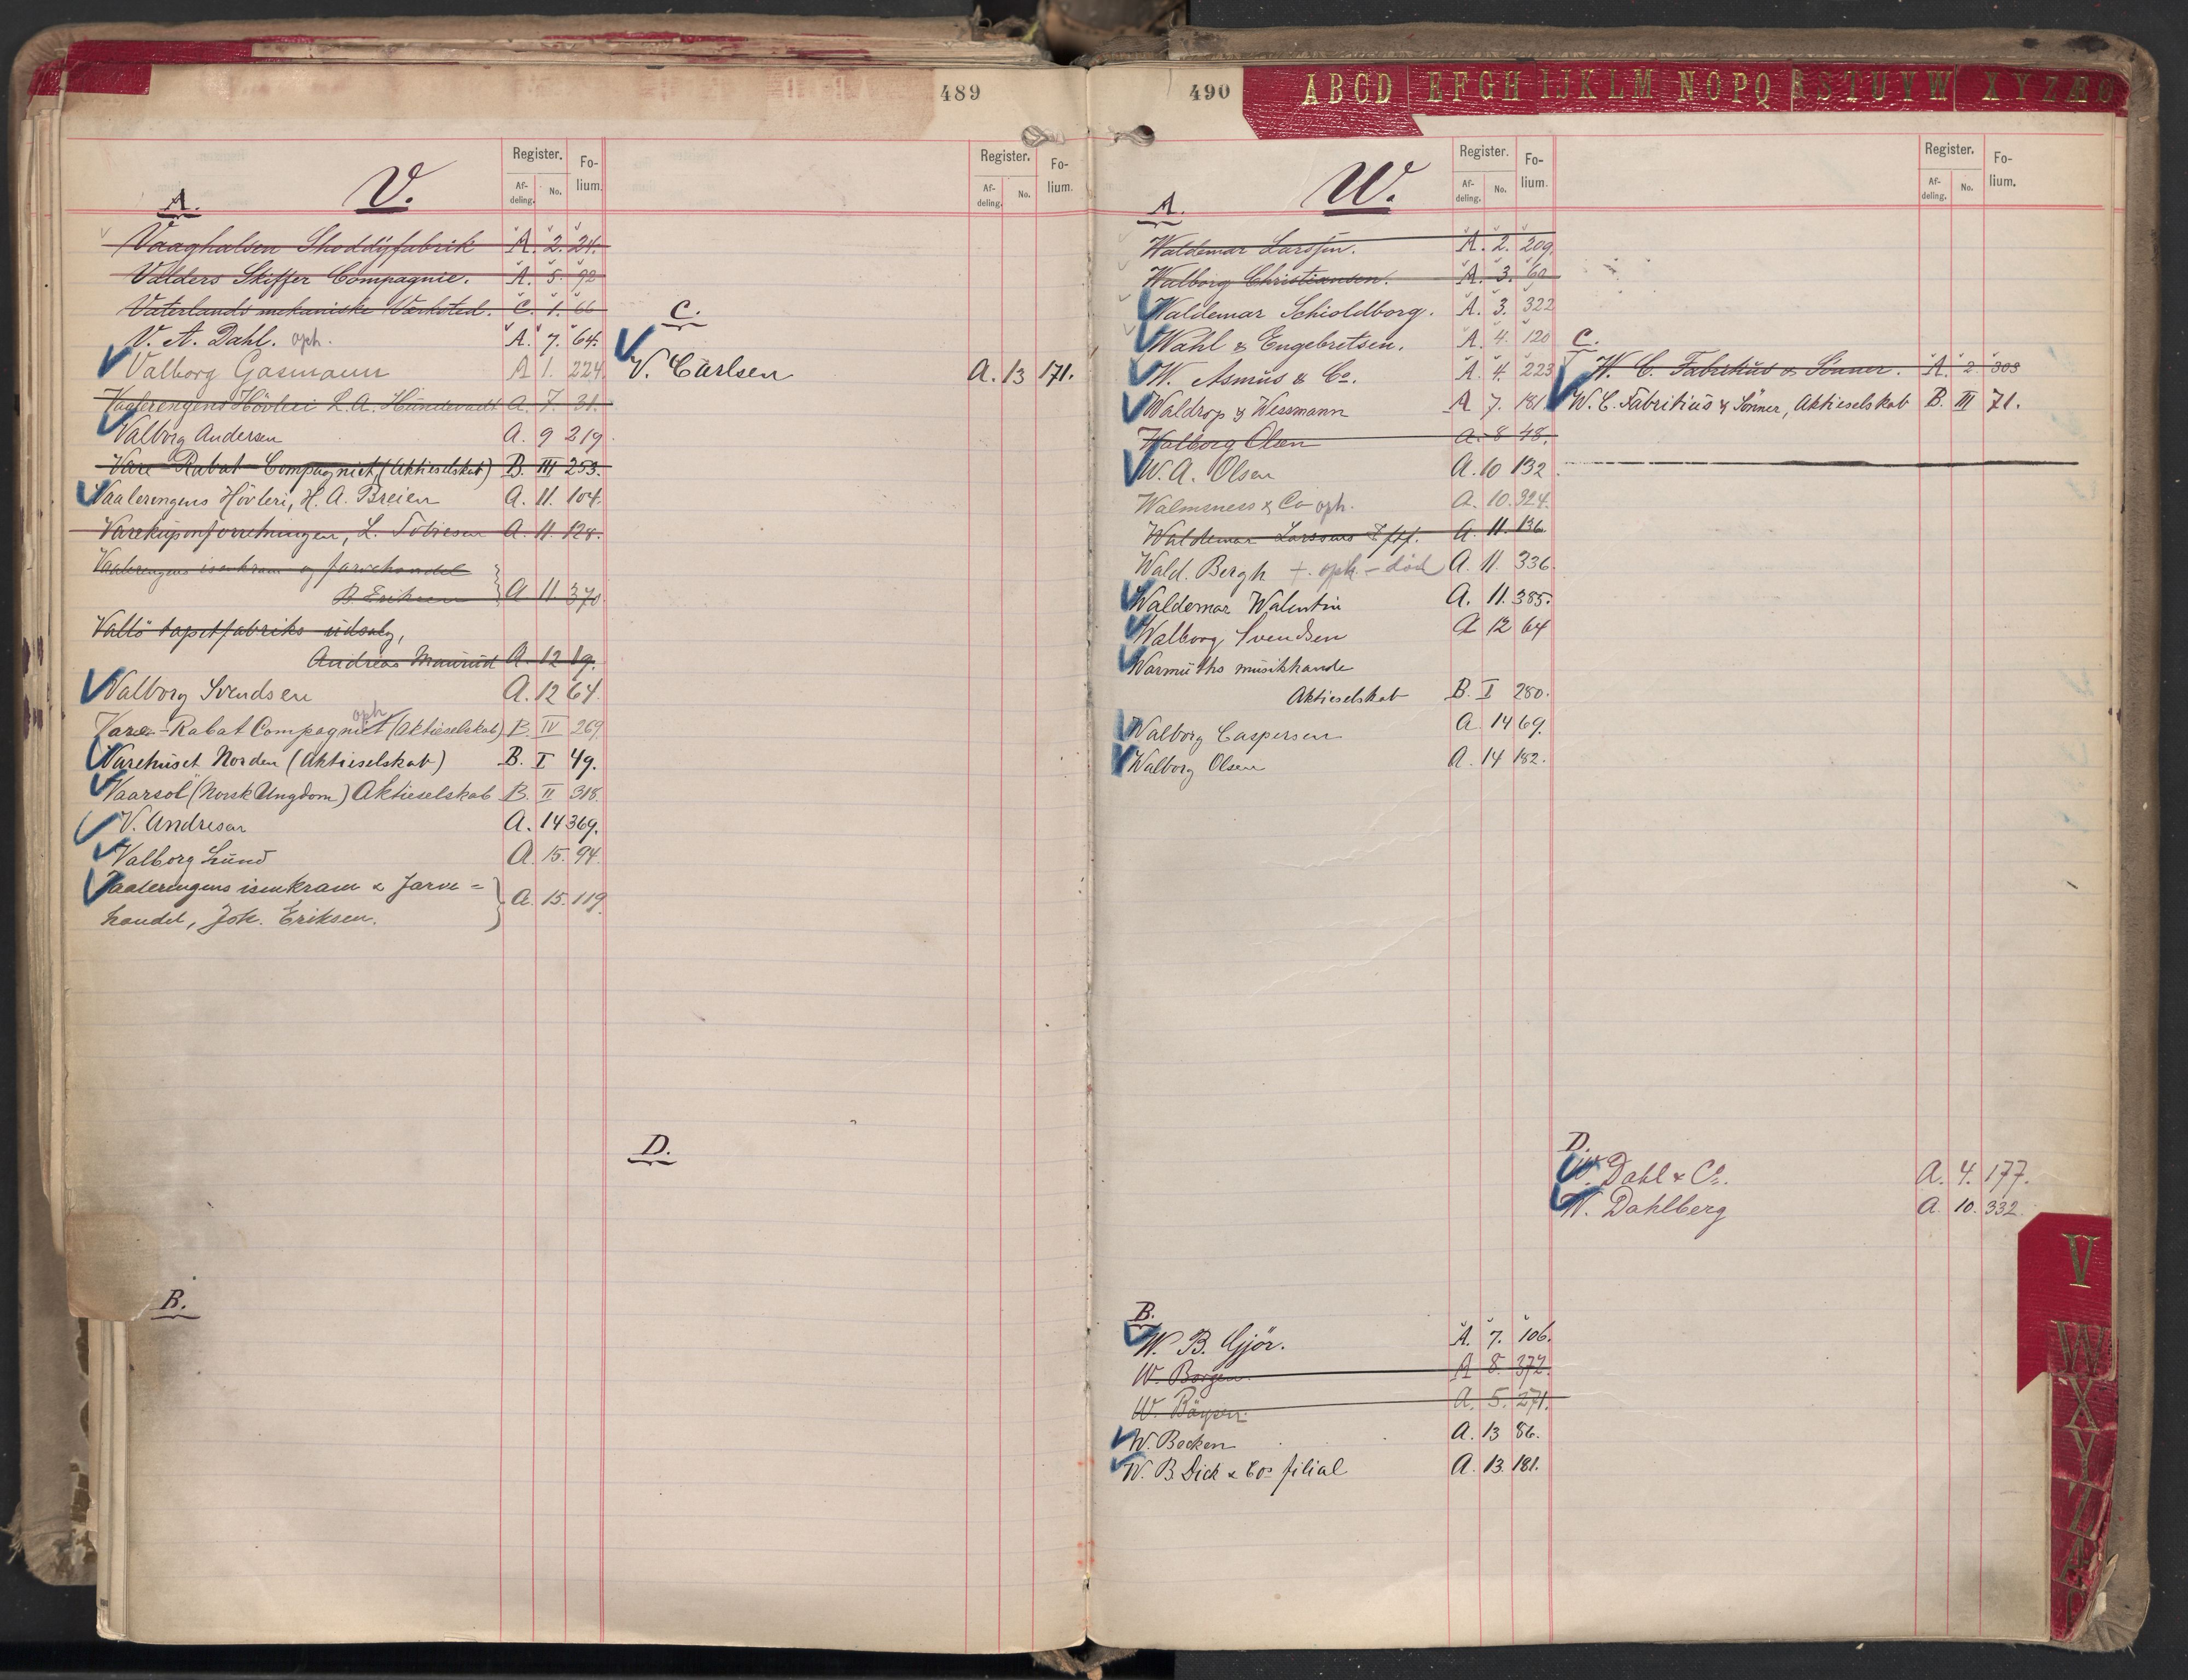 489
V.
Register.
Fo-
lium.
Af-
deling.
No.
Register.
Fo-
lium.
Af-
deling.
No.
A.
Vaaghalsen Shoddyfabrik A. 2. 24.
Valders Skiffer Compagnie. A. 5. 92
Vaterlands mekaniske Værksted. C. 1. 66
V. A. Dahl. oph. A. 7. 64.
Valborg Gasmann A 1. 224.
Vaalerengens Hövleri L. A. Hundevadt A. 7. 31.
Valborg Andersen A. 9 219.
Vare-Rabat-Compagniet (Aktieselskab) B. III 253.
Vaalerengens Hövleri, H. A. Breien A. 11. 104.
Varekuponforretningen, L. Tobiesen A. 11. 128.
Vaalerengens isenkram og farvehandel
B. Eriksen } A 11. 370.
Vallö tapetfabriks udsalg,
Andreas Maurud A. 12 19.
Valborg Svendsen A. 12 64.
oph
Vare-Rabat Compagniet (Aktieselskab) B. IV 269
Varehuset Norden (Aktieselskab) B. I 49.
Vaarsol (Norsk Ungdom) Aktieselskab B. II 318.
V. Andresen A. 14 369.
Valborg Lund A. 15. 94.
Vaalerengens isenkram & farve=
handel, Joh. Eriksen. } A. 15. 119.
B.
C.
V. Carlsen A. 13 171.
D.
490
ABCD EFGH IJKLM NOPQ RSTUVW XYZÆØ
W.
Register.
Fo-
lium.
Af-
deling.
No.
Register.
Fo-
lium.
Af-
deling.
No.
A.
Waldemar Larssen. A. 2. 209.
Walborg Christiansen. A. 3. 60
Waldemar Schioldborg. A. 3. 322
Wahl & Engebretsen. A. 4. 120
W. Asmus & Co. A. 4. 223
Waldrop & Wessmann A 7. 181
Walborg Olsen A. 8 48.
W. A. Olsen A. 10 132
Walmsness & Co oph. A. 10. 324.
Waldemar Larssens Eftf. A. 11. 136
Wald. Bergh +. oph. - död A. 11. 336.
Waldemar Walentin A. 11. 385.
Walborg Svendsen A 12 64
Warmuths musikhande
Aktieselskab B. I 280.
Walborg Caspersen A. 14 69.
Walborg Olsen A. 14 182.
B.
W. B. Gjör. A. 7. 106.
W. Borgen. A 8. 372.
W. Böysen. A. 5. 271.
W. Becken A. 13 86.
W. B. Dick & Cos filial A. 13. 181.
C.
W. C. Fabritius & Sönner. A. 2. 303
W. C. Fabritius & Sönner, Aktieselskab B. III 71.
D.
W. Dahl & Co. A. 4. 177.
W. Dahlberg A. 10. 332.
V
W
X
Y
Z
Æ
Ø